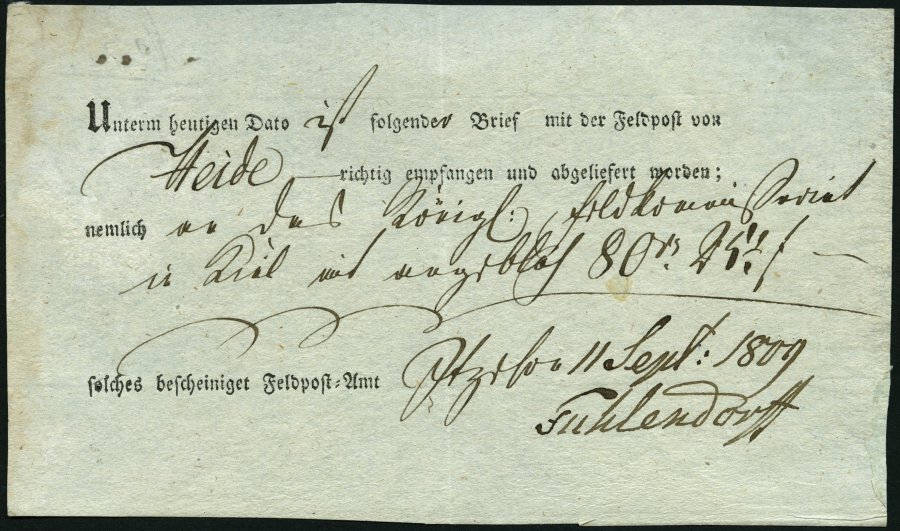 Unterm heutigen Dato ist folgender Brief mit der Feldpost von
Heide richtig empfangen und abgeliefert worden;
nemlich an das Königl: Feldkommissariat
in Kiel mit angeblich 80
solches bescheiniget Feldpost-Amt Itzehoe 11 Sept: 1809
Fuhlendorff